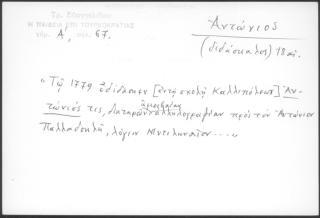 Τρ. Εὐαγγελίδου
Η ΠΑΙΔΕΙΑ ΕΠΙ ΤΟΥΡΚΟΚΡΑΤΙΑΣ
τόμ. Α΄, σελ. 67.
Ἀντώνιος
(διδάσκαλος) 18 αἰ.
"Τῷ 1779 ἐδίδασκεν [ἐν τῇ σχολῇ Καλλιπόλεως] Ἀν-
τώνιός τις, διατηρῶν ἀλληλογραφίαν πρὸς τὸν Ἀντώνιον
ἀμοιβαίαν
Παλλαδοκλῆ, λόγιον Μυτιληναῖον...."